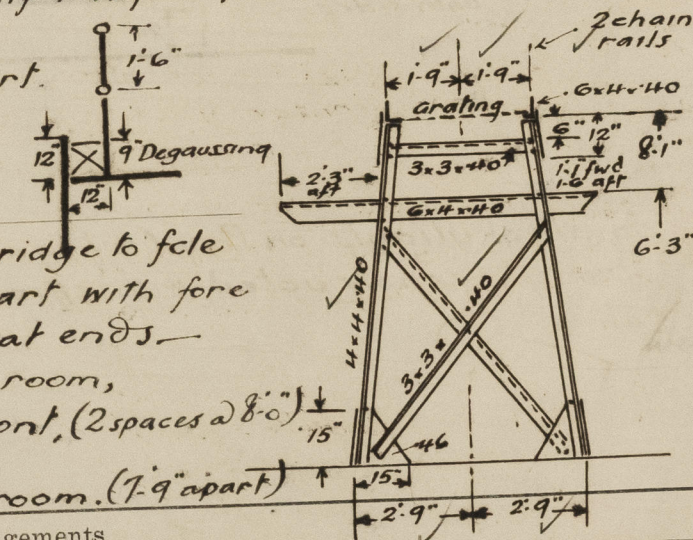 rt.
1'-6"
12"
9" Degaussing
12"
ridge to fcle
art with fore
at ends—
room,
ont, (2 spaces @ 8'-0")
room. (7'-9" apart)
gements
2 chain
rails
1'-9" 1'-9"
6×4×40
Grating
6" 12"
8'-1"
3×3×40
1'-1 fwd
1'-6 aft
2'-3"
aft
6×4×40
6'-3"
4×4×40
3×3×.40
15"
46
15"
2'-9" 2'-9"